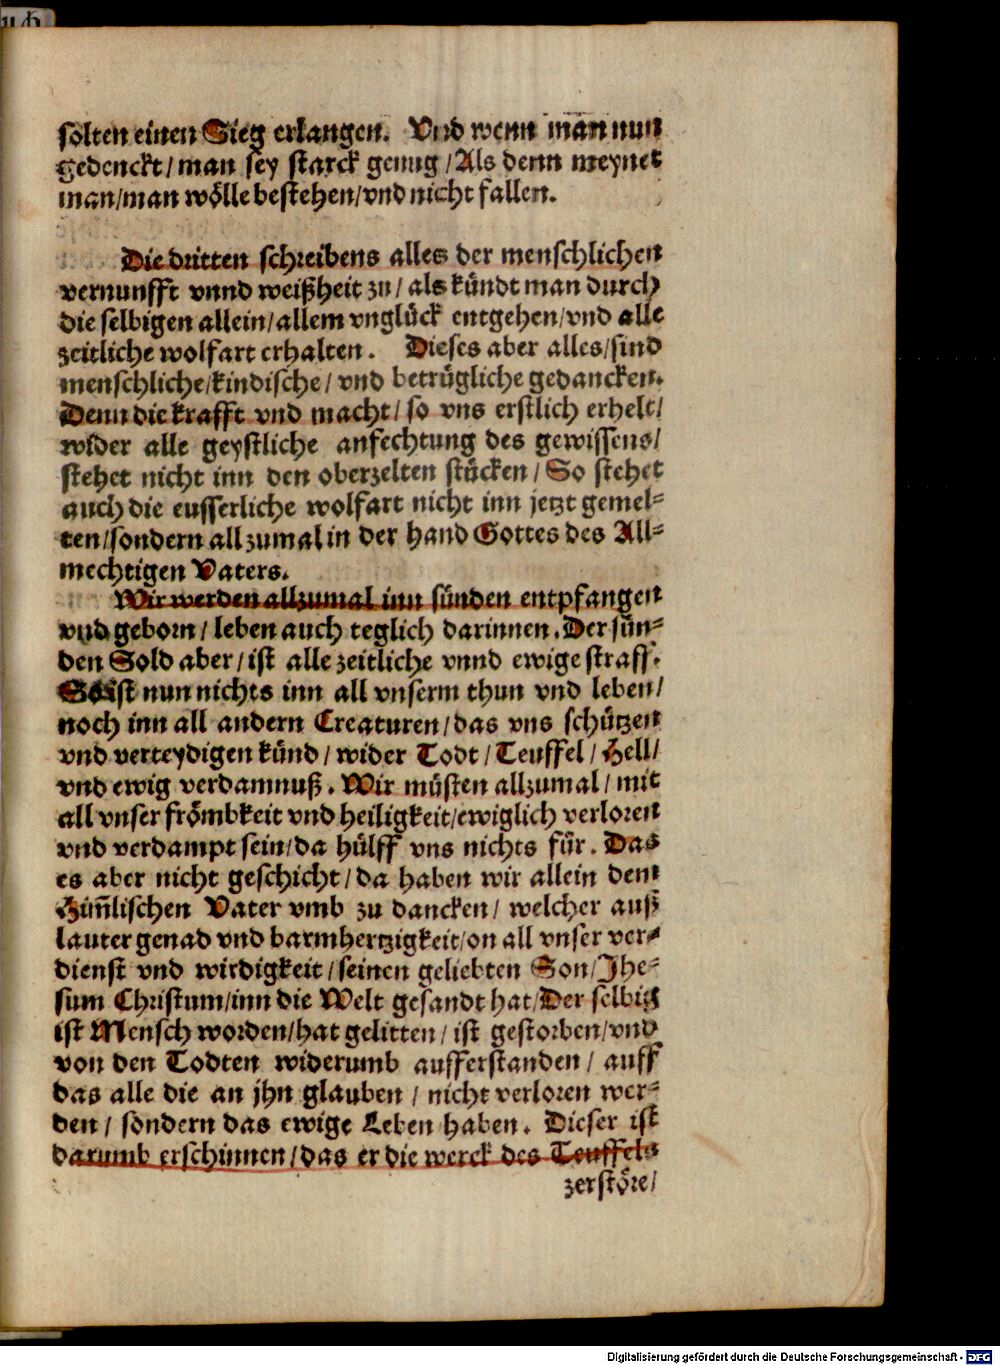 solten einen Sieg erlangen. Vnd wenn man nun
gedenckt/ man sey starck genug/ Als denn meynet
man/man wölle bestehen/vnd nicht fallen.
Die dritten schreibens alles der menschlichen
vernunfft vnnd weißheit zu/ als kündt man durch
die selbigen allein/allem vnglück entgehen/vnd alle
zeitliche wolfart erhalten. Dieses aber alles/sind
menschliche/kindische/ vnd betrügliche gedancken.
Denn die krafft vnd macht/ so vns erstlich erhelt/
wider alle geystliche anfechtung des gewissens/
stehet nicht inn den oberzelten stücken/ So stehet
auch die eusserliche wolfart nicht inn jetzt gemel-
ten/sondern allzumal in der hand Gottes des All-
mechtigen Vaters.
Wir werden allzumal inn sünden entpfangen
vnd geborn/ leben auch teglich darinnen. Der sün-
den Sold aber/ ist alle zeitliche vnnd ewige straff.
So ist nun nichts inn all vnserm thun vnd leben/
noch inn all andern Creaturen/das vns schützen
vnd verteydigen künd/ wider Todt/ Teuffel/ Hell/
vnd ewig verdamnuß. Wir müsten allzumal/ mit
all vnser frömbkeit vnd heiligkeit/ewiglich verloren
vnd verdampt sein/da hülff vns nichts für. Das
es aber nicht geschicht/ da haben wir allein dem
Him̃lischen Vater vmb zu dancken/ welcher auß
lauter genad vnd barmhertzigkeit/on all vnser ver-
dienst vnd wirdigkeit/seinen geliebten Son/Jhe-
sum Christum/inn die Welt gesandt hat/Der selbig
ist Mensch worden/hat gelitten/ ist gestorben/vnd
von den Todten widerumb aufferstanden/ auff
das alle die an jhn glauben/ nicht verloren wer-
den/ sondern das ewige Leben haben. Dieser ist
darumb erschinnen/das er die werck des Teuffels
zerstöre/
Digitalisierung gefördert durch die Deutsche Forschungsgemeinschaft - DFG